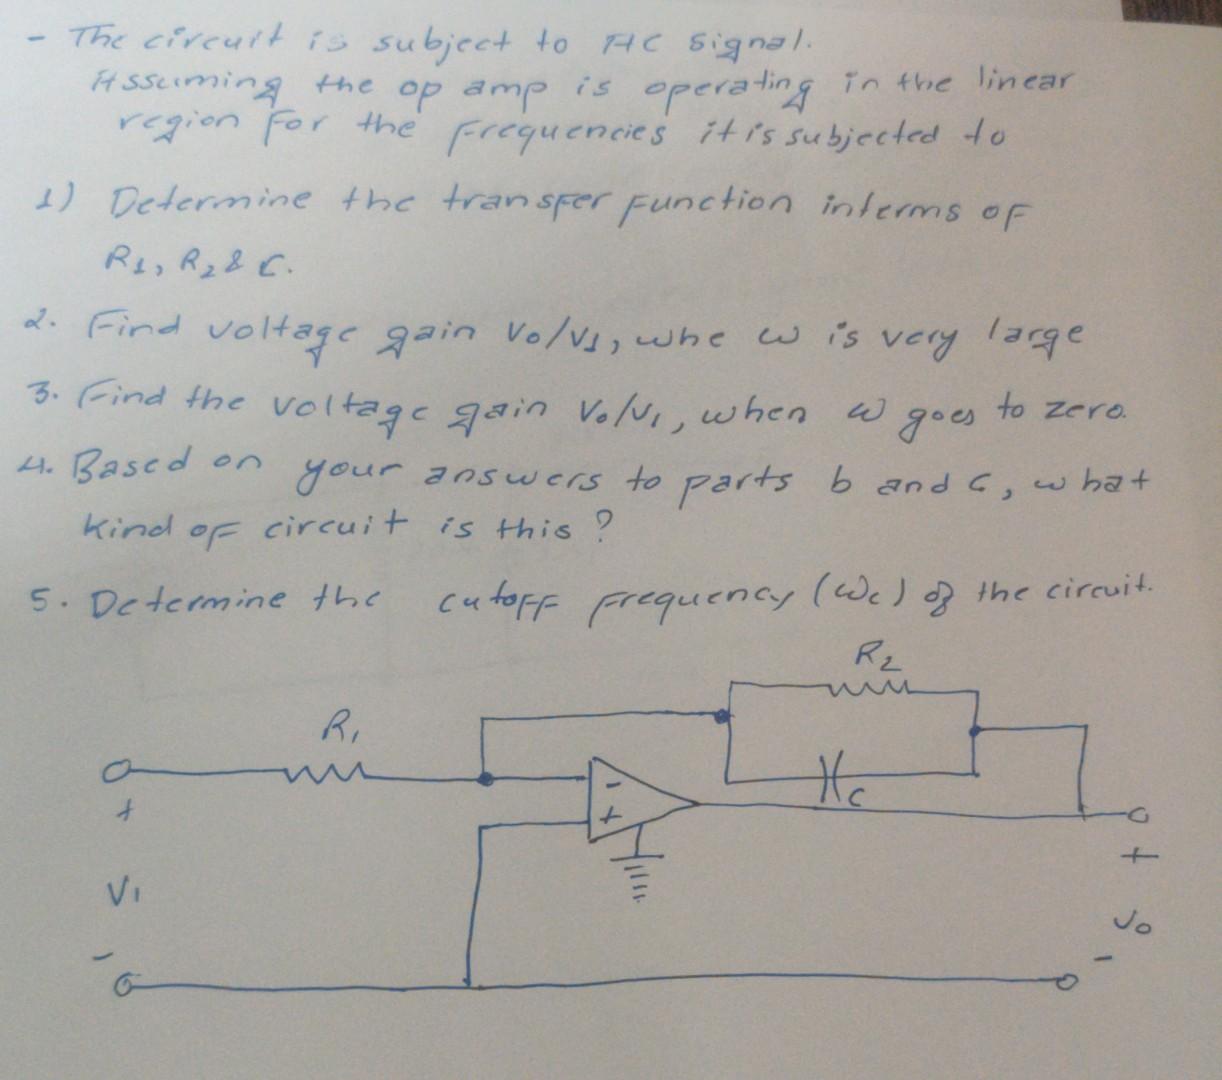 - The circuit is subject to AC signal.
Assuming the op amp is operating in the linear
region for the frequencies it is subjected to
1) Determine the transfer function interms of
R1, R2 & C.
2. Find voltage gain Vo/V1, whe ω is very large
3. Find the voltage gain Vo/V1, when ω goes to zero.
4. Based on your answers to parts b and c, what
kind of circuit is this?
5. Determine the cutoff frequency (ωc) of the circuit.
R2
R1
C
-
+
+
+
V1
Vo
-
-